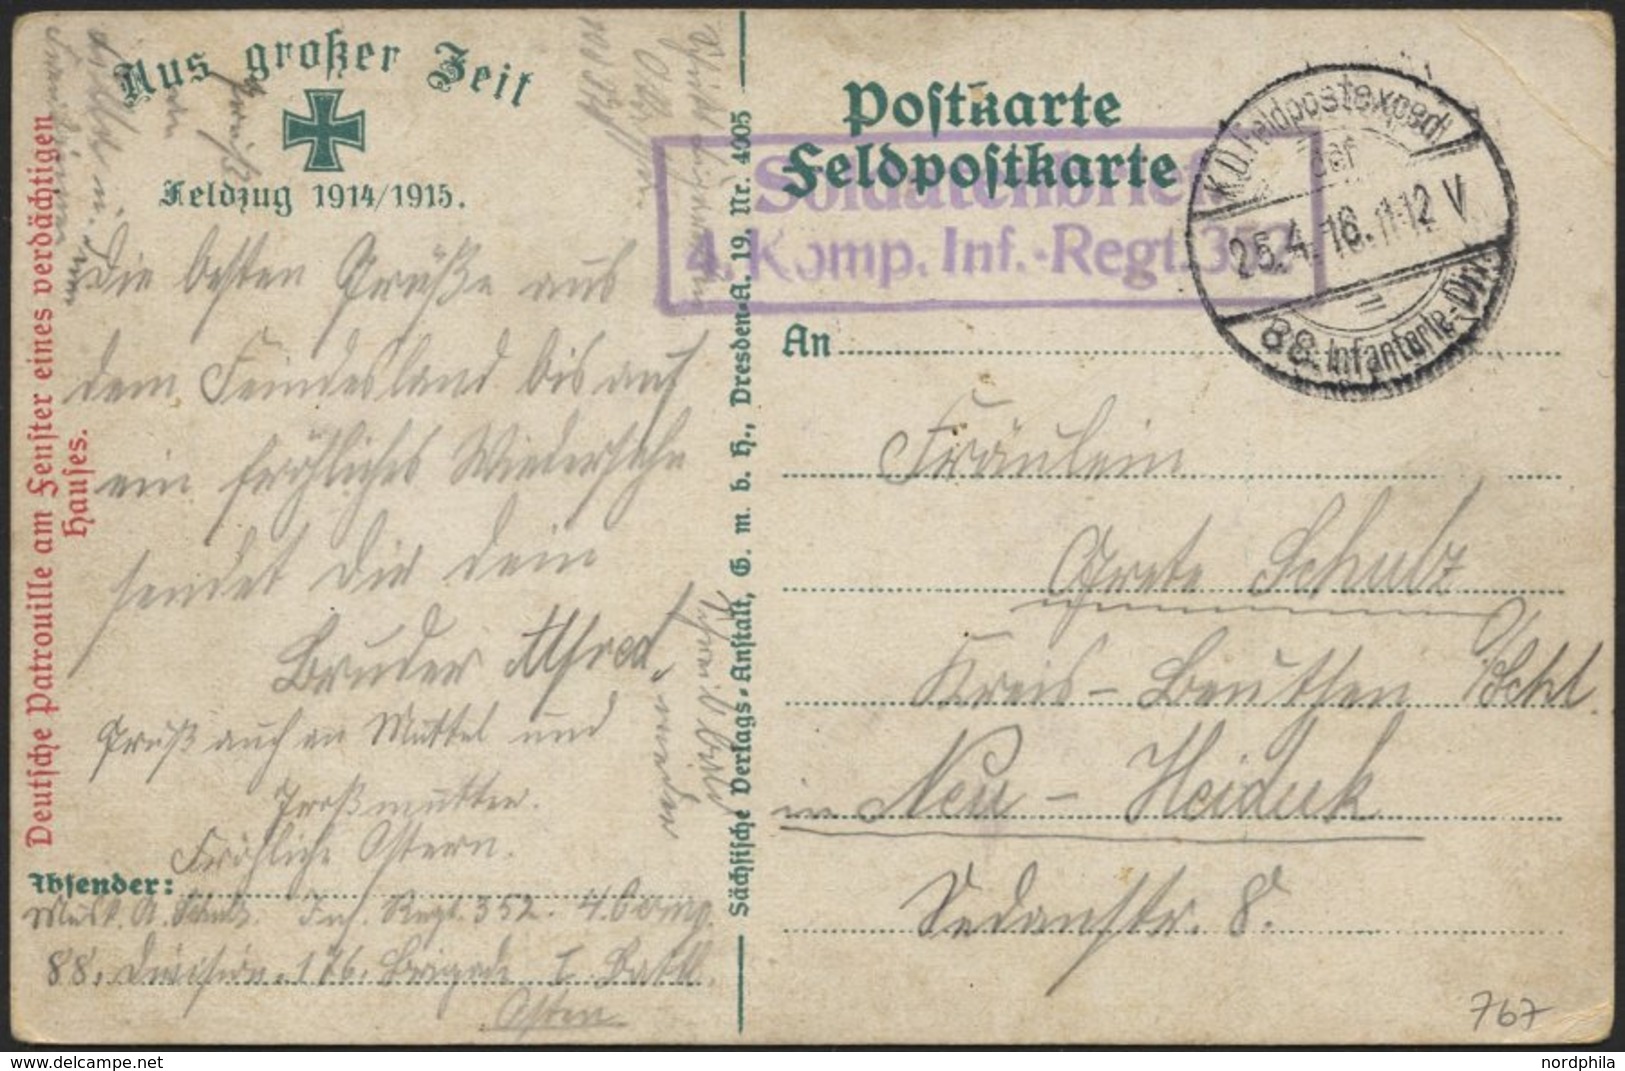 Aus großer Zeit
Feldzug 1914/1915.
Deutsche Patrouille am Fenster eines verdächtigen
Hauses.
Die besten Grüße aus
dem Feindesland bis auf
ein fröhliches Wiedersehn
sendet Dir dein
Bruder Alfred.
Gruß auch an Muttel und
Großmutter.
Fröhliche Ostern.
Schreib bald
wieder
Absender:
Musk. A. Schulz. Inf. Regt. 352. 4. Comp.
88. Division. 176. Brigade I. Batl.
Osten
Sächsische Verlags-Anstalt, G. m. b. H., Dresden-A. 19. Nr. 4005
Postkarte
Feldpostkarte
Soldatenbrief
4. Komp. Inf.-Regt. 352
K.D. Feldpostexped.
der
25.4.16. 11-12 V
88. Infanterie-Div.
An
Fräulein
Grete Schulz
Kreis-Beuthen O/Schl.
in Neu-Heiduk
Sedanstr. 8.
767
nordphila
www.delcampe.net